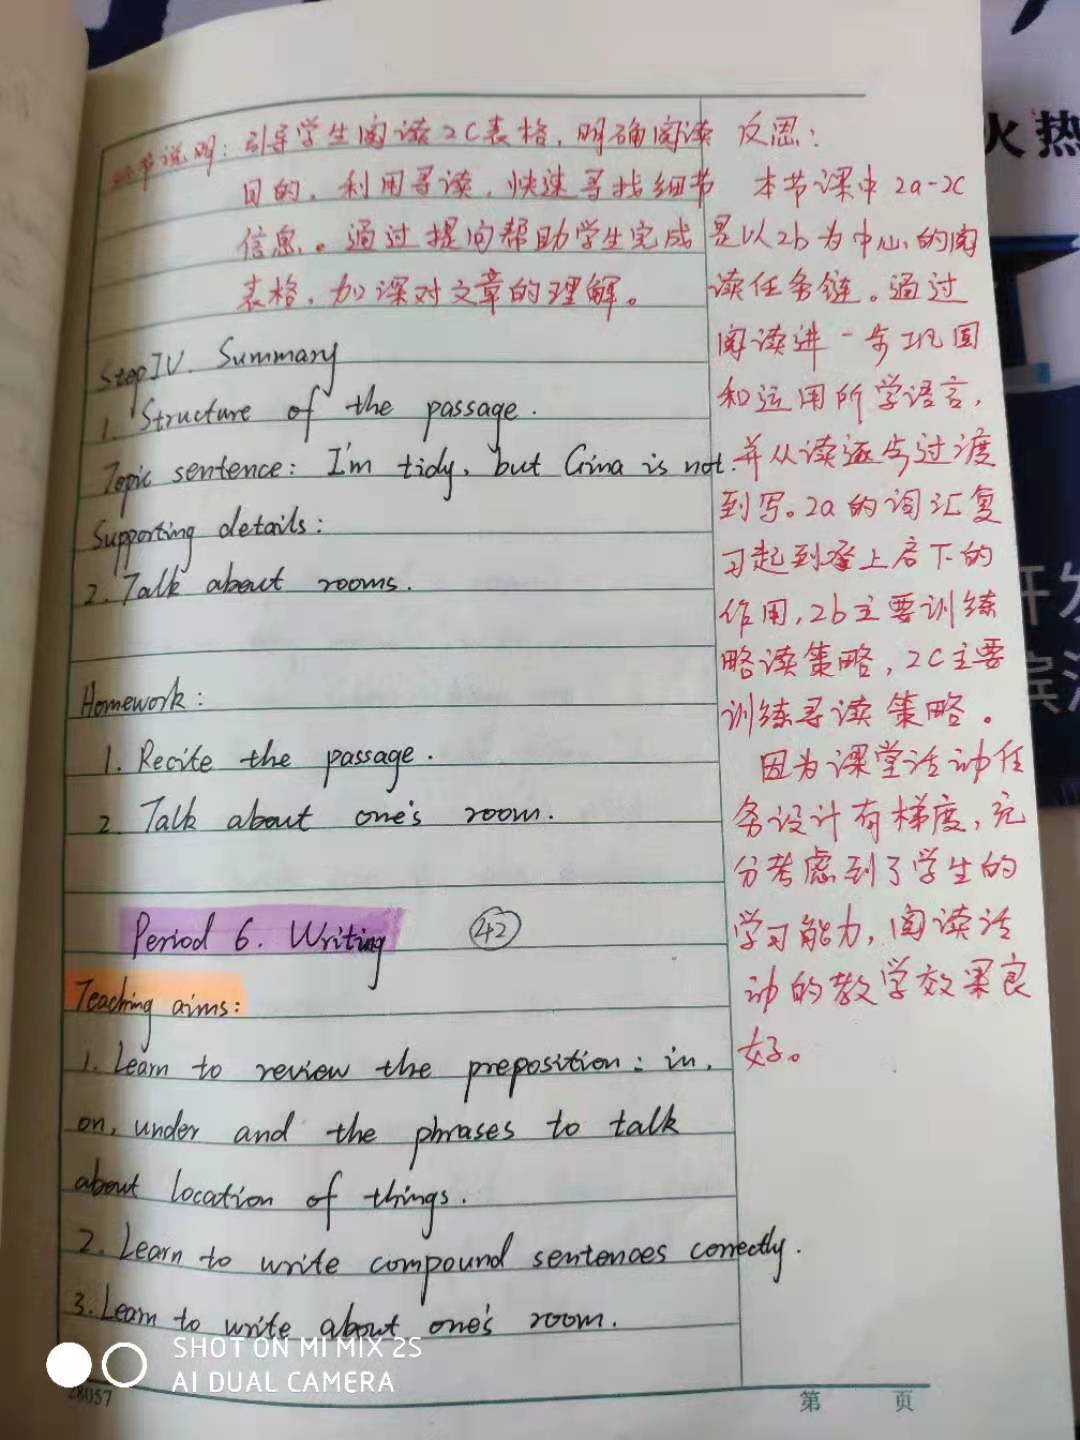 环节说明：引导学生阅读2C表格，明确阅读
目的，利用寻读，快速寻找细节
信息。通过提问帮助学生完成
表格，加深对文章的理解。
Step IV. Summary
1. Structure of the passage.
Topic sentence: I'm tidy, but Gina is not.
Supporting details:
2. Talk about rooms.
Homework:
1. Recite the passage.
2. Talk about one's room.
Period 6. Writing 42
Teaching aims:
1. Learn to review the preposition: in,
on, under and the phrases to talk
about location of things.
2. Learn to write compound sentences correctly.
3. Learn to write about one's room.
反思：
本节课中2a-2c
是以2b为中心的阅
读任务链。通过
阅读进一步巩固
和运用所学语言，
并从读逐步过渡
到写。2a的词汇复
习起到承上启下的
作用，2b主要训练
略读策略，2C主要
训练寻读策略。
因为课堂活动任
务设计有梯度，充
分考虑到了学生的
学习能力，阅读活
动的教学效果良
好。
火热
开发
滨
SHOT ON MI MIX 2S
AI DUAL CAMERA
28057
第 页